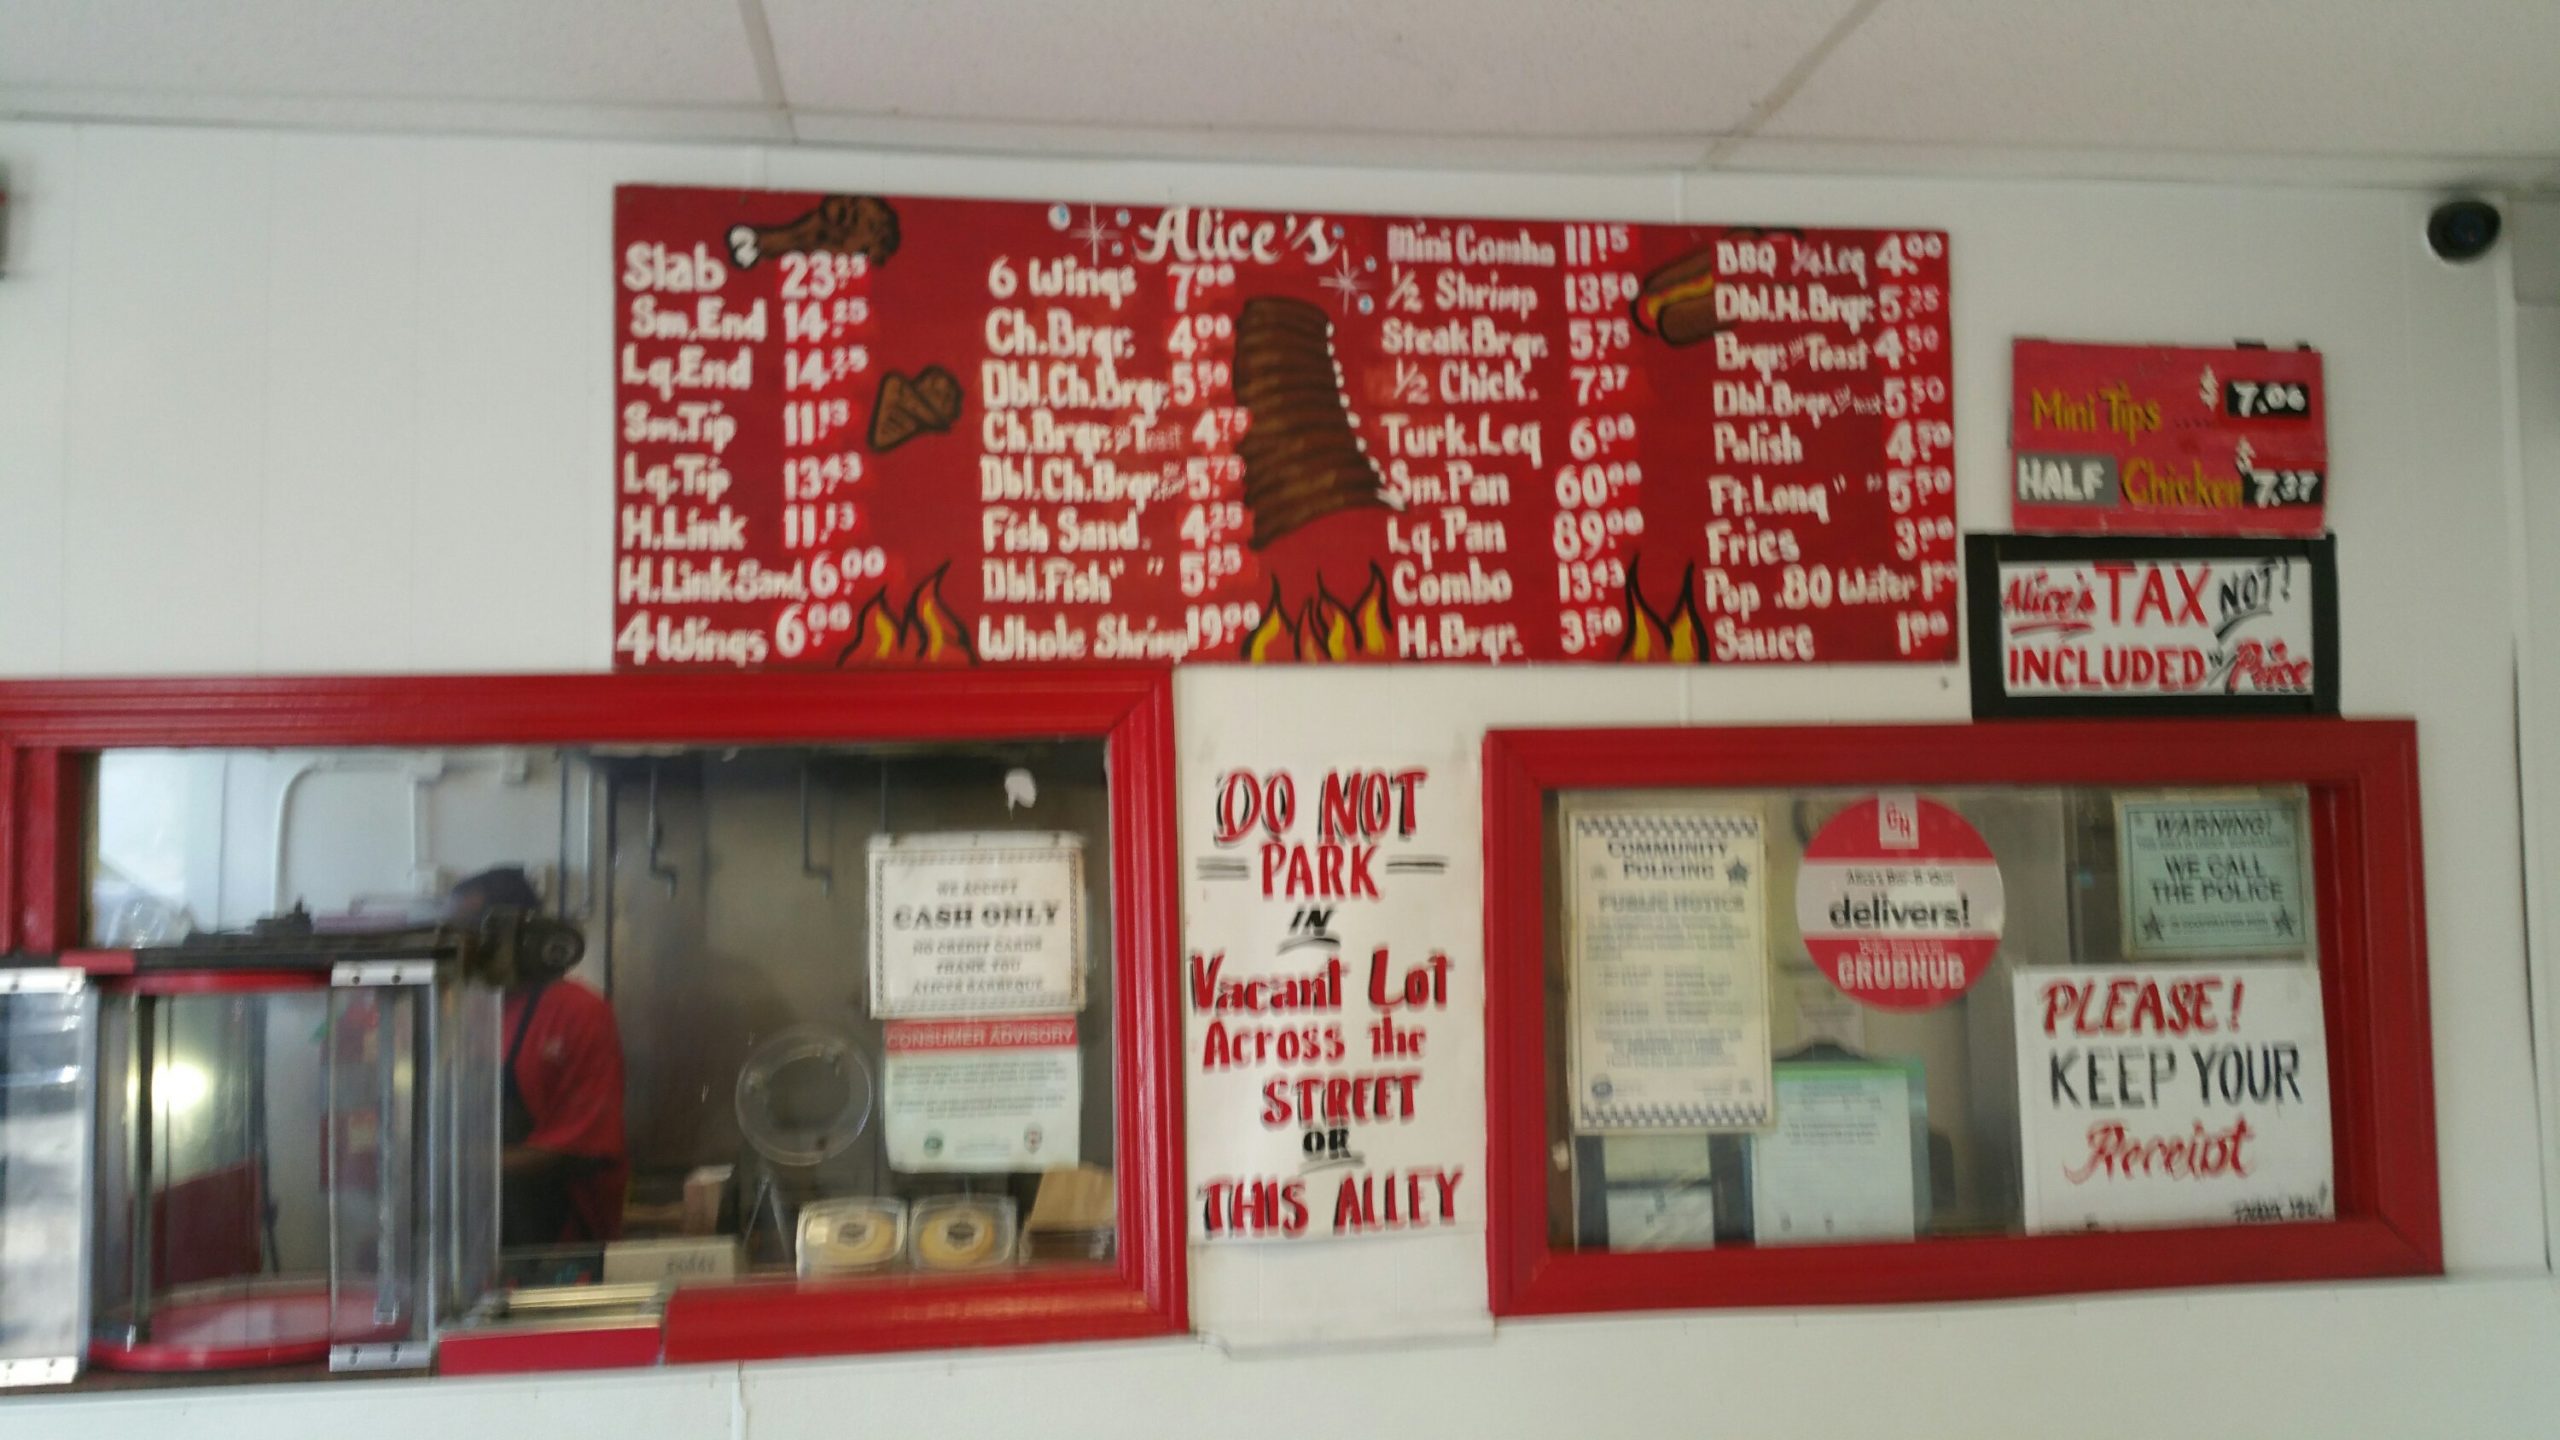 Alice's
Slab 23.25
Sm.End 14.25
Lg.End 14.25
Sm.Tip 11.13
Lg.Tip 13.43
H.Link 11.13
H.Link Sand. 6.00
4 Wings 6.00
6 Wings 7.00
Ch.Brgr. 4.00
Dbl.Ch.Brgr. 5.50
Ch.Brgr. Toast 4.75
Dbl.Ch.Brgr. 5.75
Fish Sand. 4.25
Dbl.Fish " " 5.25
Whole Shrimp 19.00
Mini Combo 11.15
1/2 Shrimp 13.50
Steak Brgr. 5.75
1/2 Chick. 7.37
Turk.Leg 6.00
Sm.Pan 60.00
Lg.Pan 89.00
Combo 13.43
H.Brgr. 3.50
BBQ 1/4 Leg 4.00
Dbl.H.Brgr. 5.25
Brgr. Toast 4.50
Dbl.Brgr. 5.50
Polish 4.50
Ft.Long " " 5.50
Fries 3.00
Pop .80 Water 1.00
Sauce 1.00
Mini Tips ..... $7.06
HALF Chicken $7.37
Alice's TAX NOT!
INCLUDED in Price
WE ACCEPT
CASH ONLY
NO CREDIT CARDS
THANK YOU
ALICES BARBEQUE
CONSUMER ADVISORY
DO NOT
PARK
IN
Vacant Lot
Across the
STREET
OR
THIS ALLEY
COMMUNITY
POLICING
PUBLIC NOTICE
GH
Alice's Bar-B-Que
delivers!
GRUBHUB
WARNING!
WE CALL
THE POLICE
PLEASE!
KEEP YOUR
Receipt
THANK YOU!